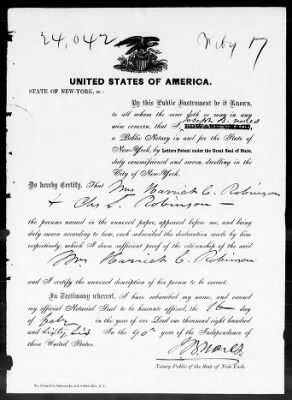 24,042 Feby 17
UNITED STATES OF AMERICA.
STATE OF NEW-YORK, ss:
By this Public Instrument be it Known,
to all whom the same doth or may in any
wise concern, that I, Joseph B. Nones
a Public Notary in and for the State of
New-York, by Letters Patent under the Great Seal of State,
duly commissioned and sworn, dwelling in the
City of New-York.
Do hereby Certify, That Mrs Harriet C. Robinson
& Chs D. Robinson
the persons named in the annexed paper, appeared before me, and being
duly sworn according to law, each subscribed the declaration made by him
respectively, which I deem sufficient proof of the citizenship of the said
Mrs Harriet C. Robinson
and I certify the annexed description of his person to be correct.
In Testimony whereof, I have subscribed my name, and caused
my official Notarial Seal to be hereunto affixed, the 16 day
of Feby in the year of our Lord one thousand eight hundred
and sixty six In the 90th year of the Independence of
these United States.
JB Nones
Notary Public of the State of New York.